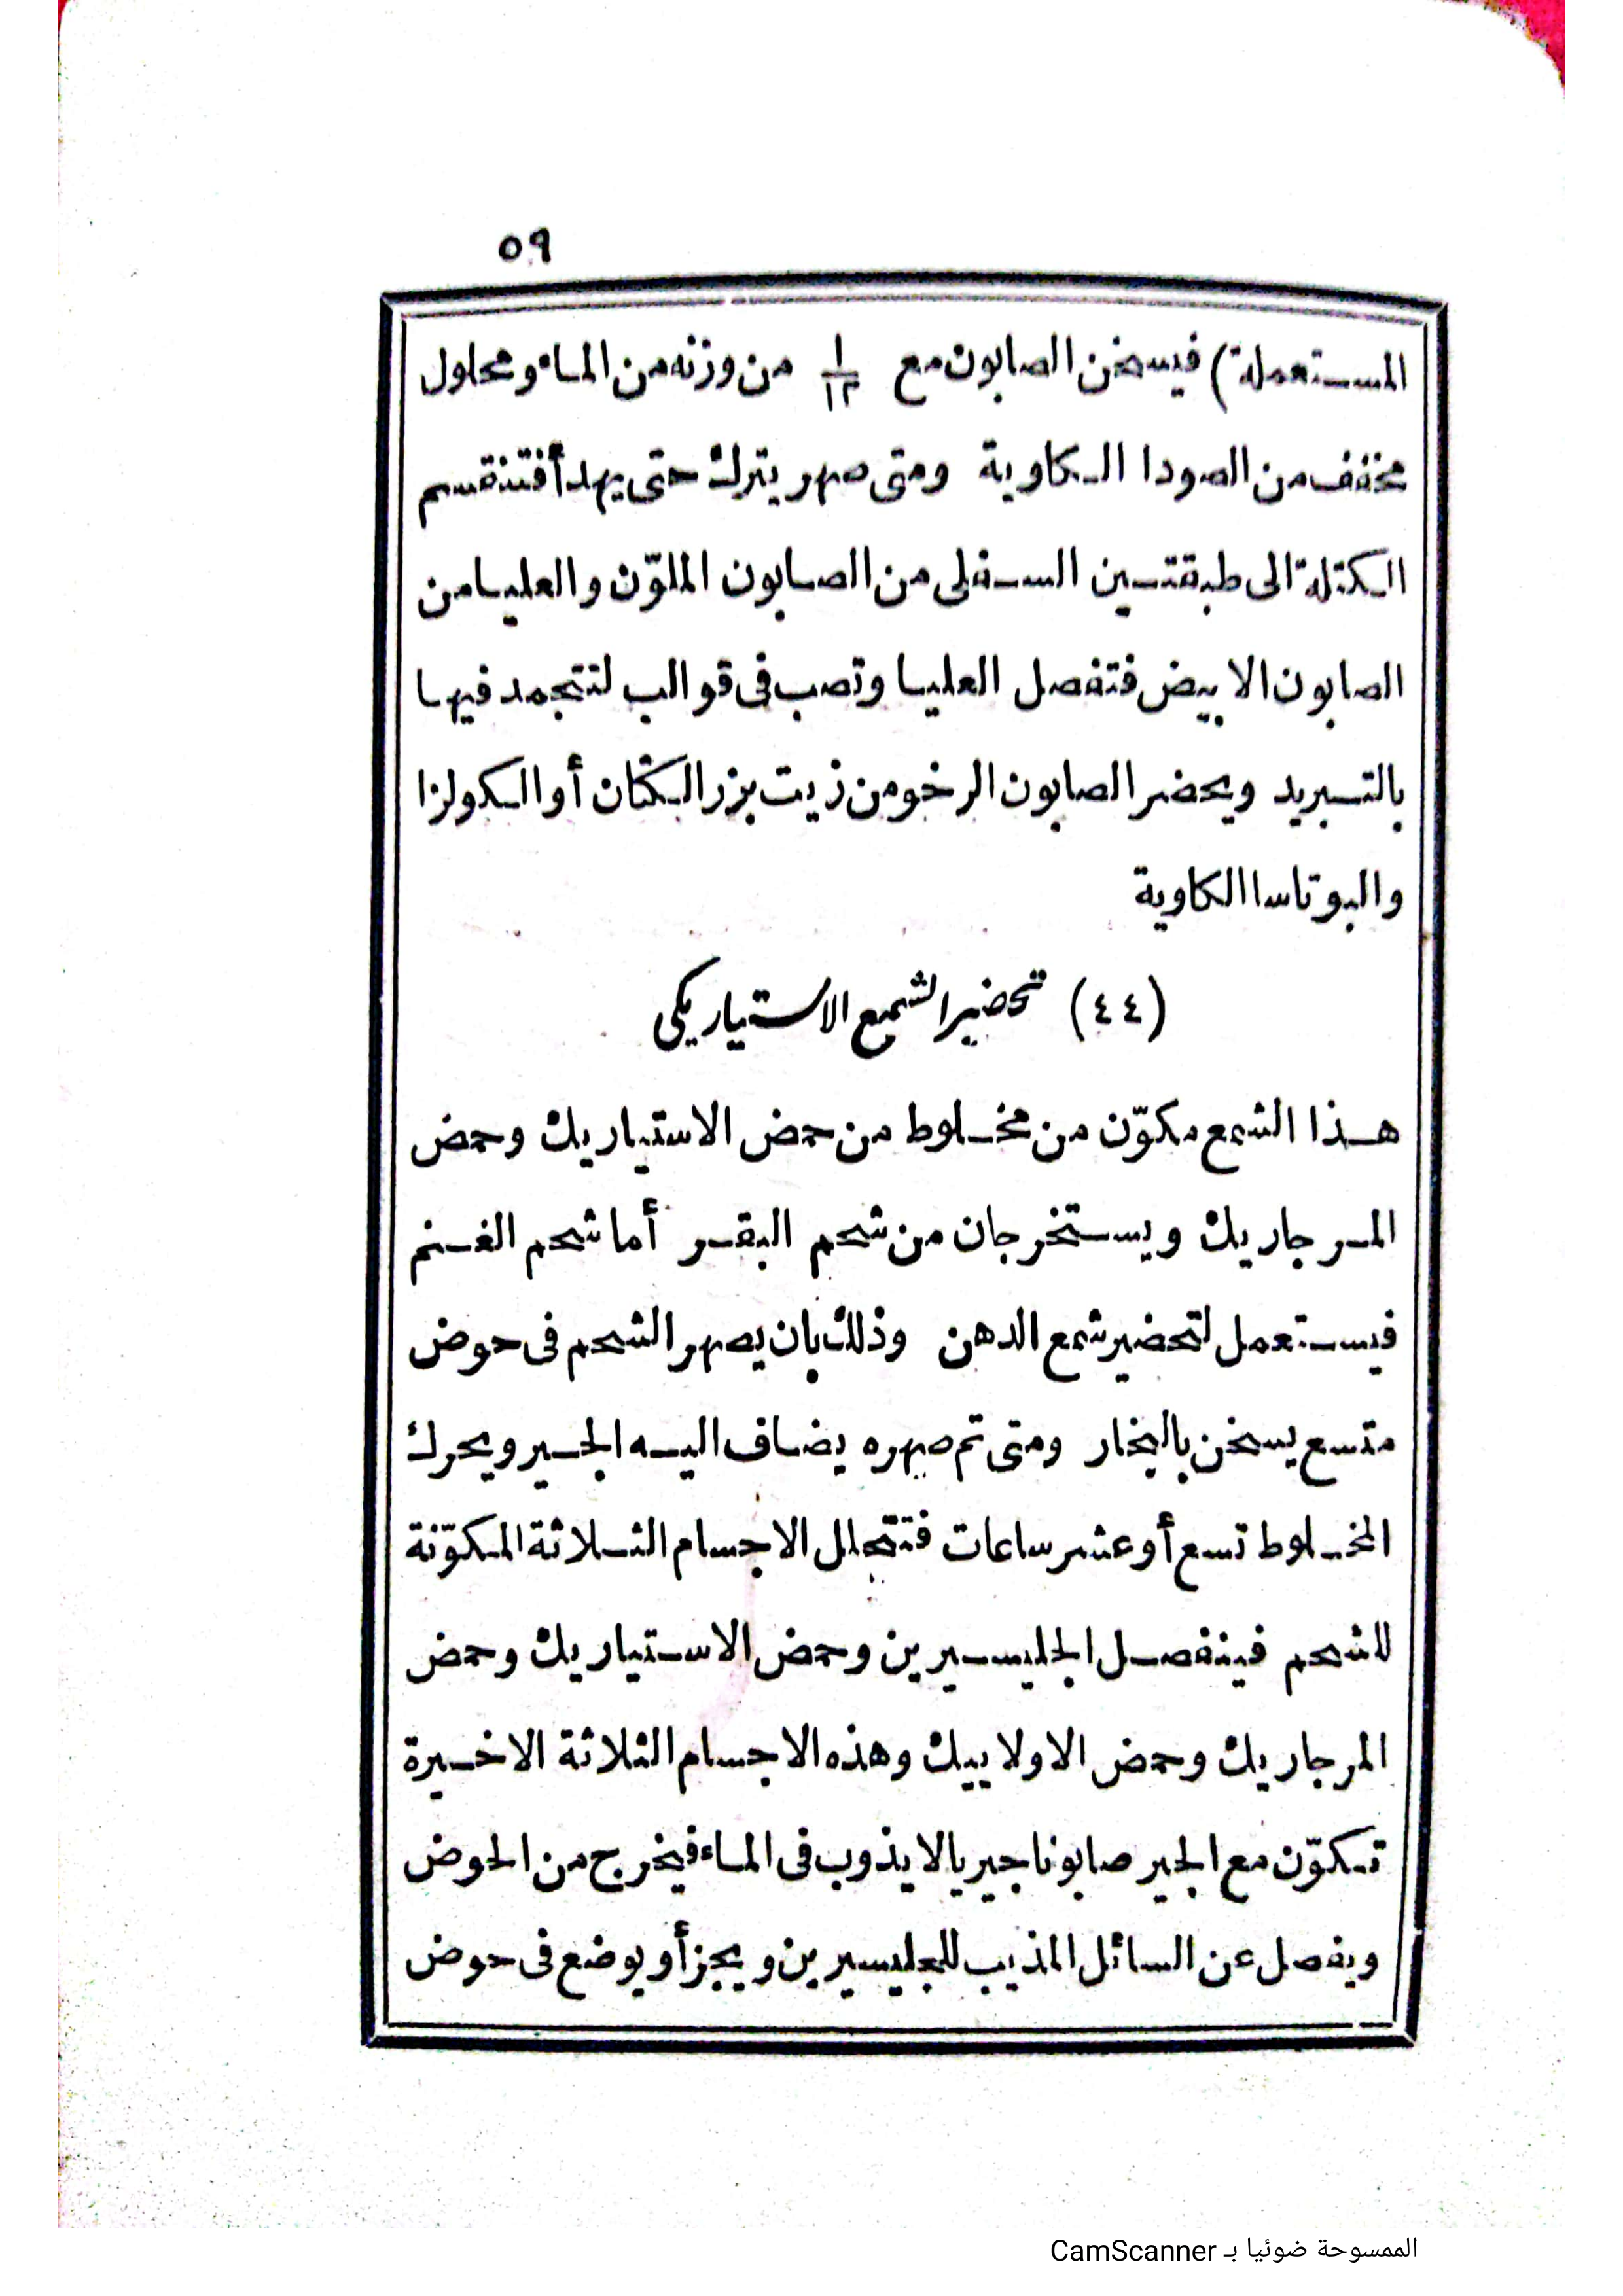 ٥٩
المستعملة) فيسخن الصابون مع ١/١٢ من وزنه من الماء ومحلول
مخفف من الصودا الكاوية ومتى صهر يترك حتى يهدأ فتنقسم
الكتلة الى طبقتين السفلى من الصابون الملوّن والعليا من
الصابون الابيض فتفصل العليا وتصب فى قوالب لتتجمد فيها
بالتبريد ويحضر الصابون الرخو من زيت بزر الكتان أو الكولزا
والبوتاسا الكاوية
(٤٤) تحضير الشمع الاستياريكى
هذا الشمع مكوّن من مخلوط من حمض الاستياريك وحمض
المرجاريك ويستخرجان من شحم البقر أما شحم الغنم
فيستعمل لتحضير شمع الدهن وذلك بان يصهر الشحم فى حوض
متسع يسخن بالبخار ومتى تم صهره يضاف اليه الجير ويحرك
المخلوط تسع أو عشر ساعات فتتحلل الاجسام الثلاثة المكوّنة
للشحم فينفصل الجليسيرين وحمض الاستياريك وحمض
المرجاريك وحمض الاولاييك وهذه الاجسام الثلاثة الاخيرة
تكوّن مع الجير صابونا جيريا لا يذوب فى الماء فيخرج من الحوض
ويفصل عن السائل المذيب للجليسيرين ويجزأ ويوضع فى حوض
الممسوحة ضوئيا بـ CamScanner